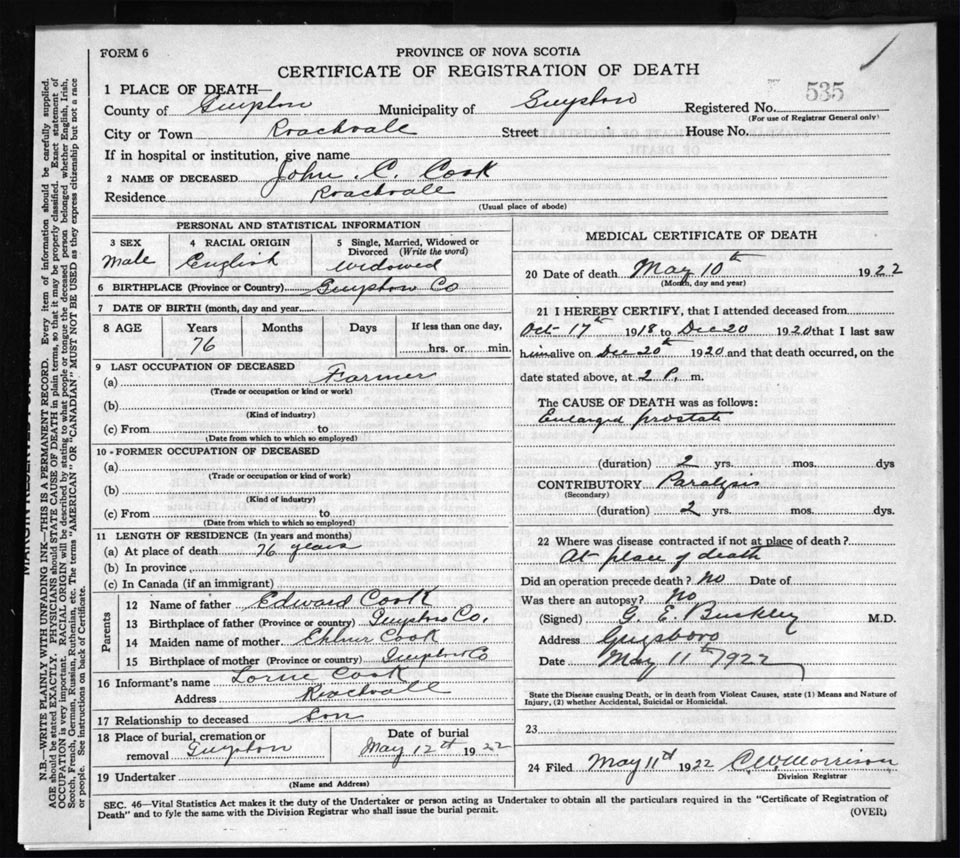 FORM 6
PROVINCE OF NOVA SCOTIA
CERTIFICATE OF REGISTRATION OF DEATH
1 PLACE OF DEATH—
County of Guysboro Municipality of Guysboro Registered No. 535
(For use of Registrar General only)
City or Town Roachvale Street House No.
If in hospital or institution, give name
2 NAME OF DECEASED John C. Cook
Residence Roachvale
(Usual place of abode)
PERSONAL AND STATISTICAL INFORMATION
3 SEX Male
4 RACIAL ORIGIN English
5 Single, Married, Widowed or Divorced (Write the word) Widowed
6 BIRTHPLACE (Province or Country) Guysboro Co
7 DATE OF BIRTH (month, day and year
8 AGE Years Months Days If less than one day,
76 hrs. or min.
9 LAST OCCUPATION OF DECEASED
(a) Farmer
(Trade or occupation or kind or work)
(b)
(Kind of industry)
(c) From to
(Date from which to which so employed)
10 - FORMER OCCUPATION OF DECEASED
(a)
(Trade or occupation or kind of work)
(b)
(Kind of industry)
(c) From to
(Date from which to which so employed)
11 LENGTH OF RESIDENCE (In years and months)
(a) At place of death 76 years
(b) In province
(c) In Canada (if an immigrant)
Parents
12 Name of father Edward Cook
13 Birthplace of father (Province or country) Guysboro Co.
14 Maiden name of mother Cook
15 Birthplace of mother (Province or country) Guysboro Co
16 Informant's name Lorne Cook
Address Roachvale
17 Relationship to deceased Son
18 Place of burial, cremation or removal Guysboro
Date of burial May 12th 1922
19 Undertaker
(Name and Address)
MEDICAL CERTIFICATE OF DEATH
20 Date of death May 10th 1922
(Month, day and year)
21 I HEREBY CERTIFY, that I attended deceased from
Oct 17th 1918 to Dec 20 1920 that I last saw
him alive on Dec 20th 1920 and that death occurred, on the
date stated above, at 2 P. m.
The CAUSE OF DEATH was as follows:
Enlarged prostate
(duration) 2 yrs. mos. dys
CONTRIBUTORY Paralysis
(Secondary)
(duration) 2 yrs. mos. dys.
22 Where was disease contracted if not at place of death?
At place of death
Did an operation precede death? No Date of
Was there an autopsy? No
(Signed) G. E. Buckley M.D.
Address Guysboro
Date May 11th 1922
State the Disease causing Death, or in death from Violent Causes, state (1) Means and Nature of
Injury, (2) whether Accidental, Suicidal or Homicidal.
23
24 Filed May 11th 1922 C. W. Morrison
Division Registrar
SEC. 46—Vital Statistics Act makes it the duty of the Undertaker or person acting as Undertaker to obtain all the particulars required in the "Certificate of Registration of
Death" and to fyle the same with the Division Registrar who shall issue the burial permit.
(OVER)
N.B.—WRITE PLAINLY WITH UNFADING INK—THIS IS A PERMANENT RECORD. Every item of information should be carefully supplied.
AGE should be stated EXACTLY. PHYSICIANS should STATE CAUSE OF DEATH in plain terms, so that it may be properly classified. Exact statement of
OCCUPATION is very important. RACIAL ORIGIN will be described by stating to what people or tongue the deceased person belonged whether English, Irish,
Scotch, French, German, Russian, Ruthenian, etc. The terms "AMERICAN" or "CANADIAN" MUST NOT BE USED as they express citizenship but not a race
or people. See instructions on back of Certificate.